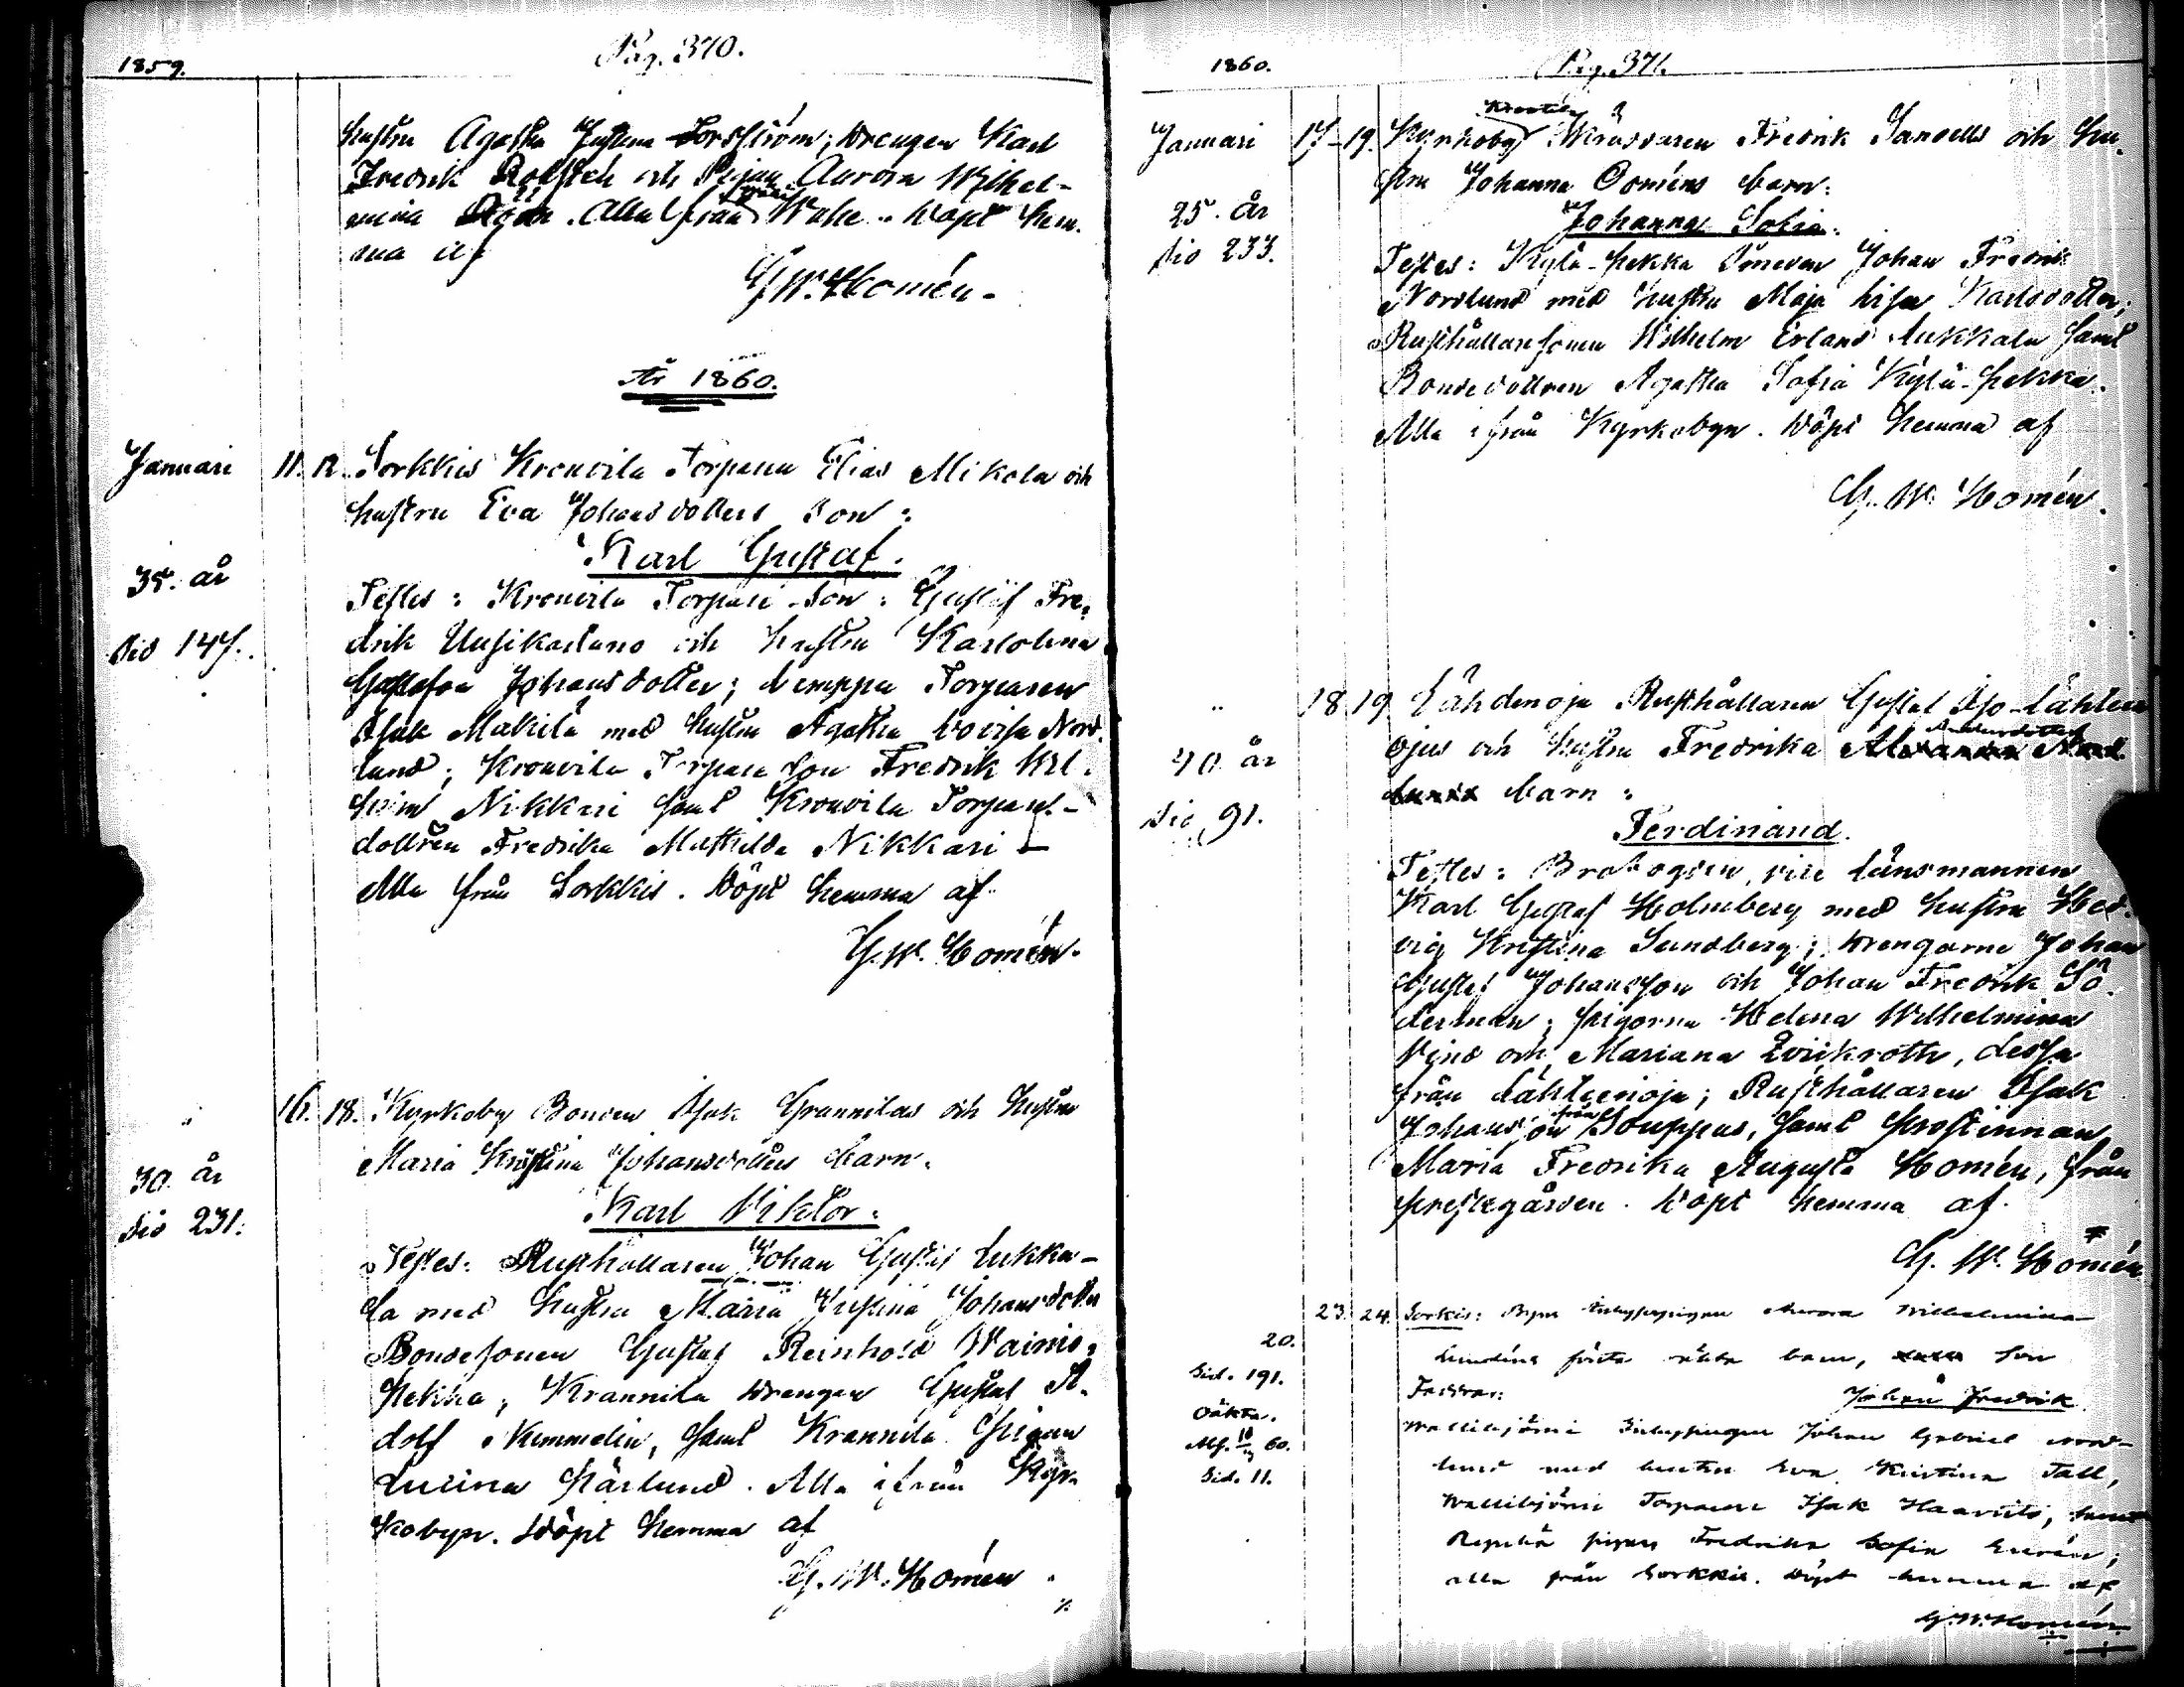 1859.
Pag. 370.
hustru Agatha Justina Forsström; drengen Karl
Fredrik Rolstén och Pigan Aurora Wilhel-
mina Röök. Alla från Wahe. döpt hem-
ma af
G. W. Homén.
År 1860.
Januari 11. 12. Sorkkis Kronvila Torparen Elias Mikola och
hustru Eva Johansdotters son:
Karl Gustaf.
35. år
Testes: Kronvila Torpare-son: Gustaf Fre-
Sid 147.
drik Uusikartano och hustru Karolina
Gustafva Johansdotter; Torparen
Isak Mäkilä med hustru Agatha Lovisa Nord-
lund; Kronvila Torpare son Fredrik Vil-
helm Nikkari samt Kronvila Torpare-
dottren Fredrika Mathilda Nikkari
Alla från Sorkkis. döpt hemma af
G. W. Homén.
" 16. 18. Kyrkoby Bonden Isak Grannilas och hustru
Maria Kristina Johansdotters barn.
30 år
Sid 231.
Karl Viktor.
Testes: Rusthållaren Johan Gustaf Lukka-
la med hustru Maria Justina Johansdotter
Bondesonen Gustaf Reinhold Wainio-
Pekka; Krannila drengen Gustaf A-
dolf Nummelin, samt Krannila Pigan
Lucina Härlund. Alla ifrån Kyr-
kobyn. döpt hemma af
G. W. Homén
1860.
Pag. 371.
Januari 17. 19. Kyrkoby Skräddaren Fredrik Sandells och hu-
stru Johanna Ooméns barn:
25. år
Johanna Sofia.
Sid 233.
Testes: Kylä-Pekka Johan Fredrik
Nordlund med hustru Maja Lisa Karlsdotter;
Rusthållaresonen Wilhelm Erland Lukkala samt
Bondedottren Agatha Sofia Kylä-Pekka.
Alla ifrån Kyrkobyn. döpt hemma af
G. W. Homén.
" 18 19 Lähdenoja Rusthållaren Gustaf Iso-Lähteen
ojas och hustru Fredrika
40 år
barn:
Sid 91.
Ferdinand.
Testes: Brofogden, vice länsmannen
Karl Gustaf Holmberg med hustru Hed-
vig Kristina Sundberg; drengarne Johan
Gustaf Johansson och Johan Fredrik Sö-
derman; pigorna Helena Wilhelmina
Vind och Mariana Qviickroth, dessa
från Lähteenoja; Rusthållaren Isak
Johansson från Souppas, samt Prostinnan
Maria Fredrika Augusta Homén, från
prestegården. döpt hemma af
G. W. Homén
23. 24. Sorkis: Inhysespigan Aurora Wilhelmina
20.
Lindéns första oäkta barn, son
Sid. 191.
Faddrar: Johan Fredrik
Oäkta.
Wallibjörni Inhysesdrengen Johan Gabriel Nord-
60.
lund med hustru Eva Kristina Tall,
Sid. 11.
Wallibjörni Torparen Isak Haavisto, samt
pigan Fredrika Sofia
alla från Sorkkis. döpt hemma af
G. W. Homén.